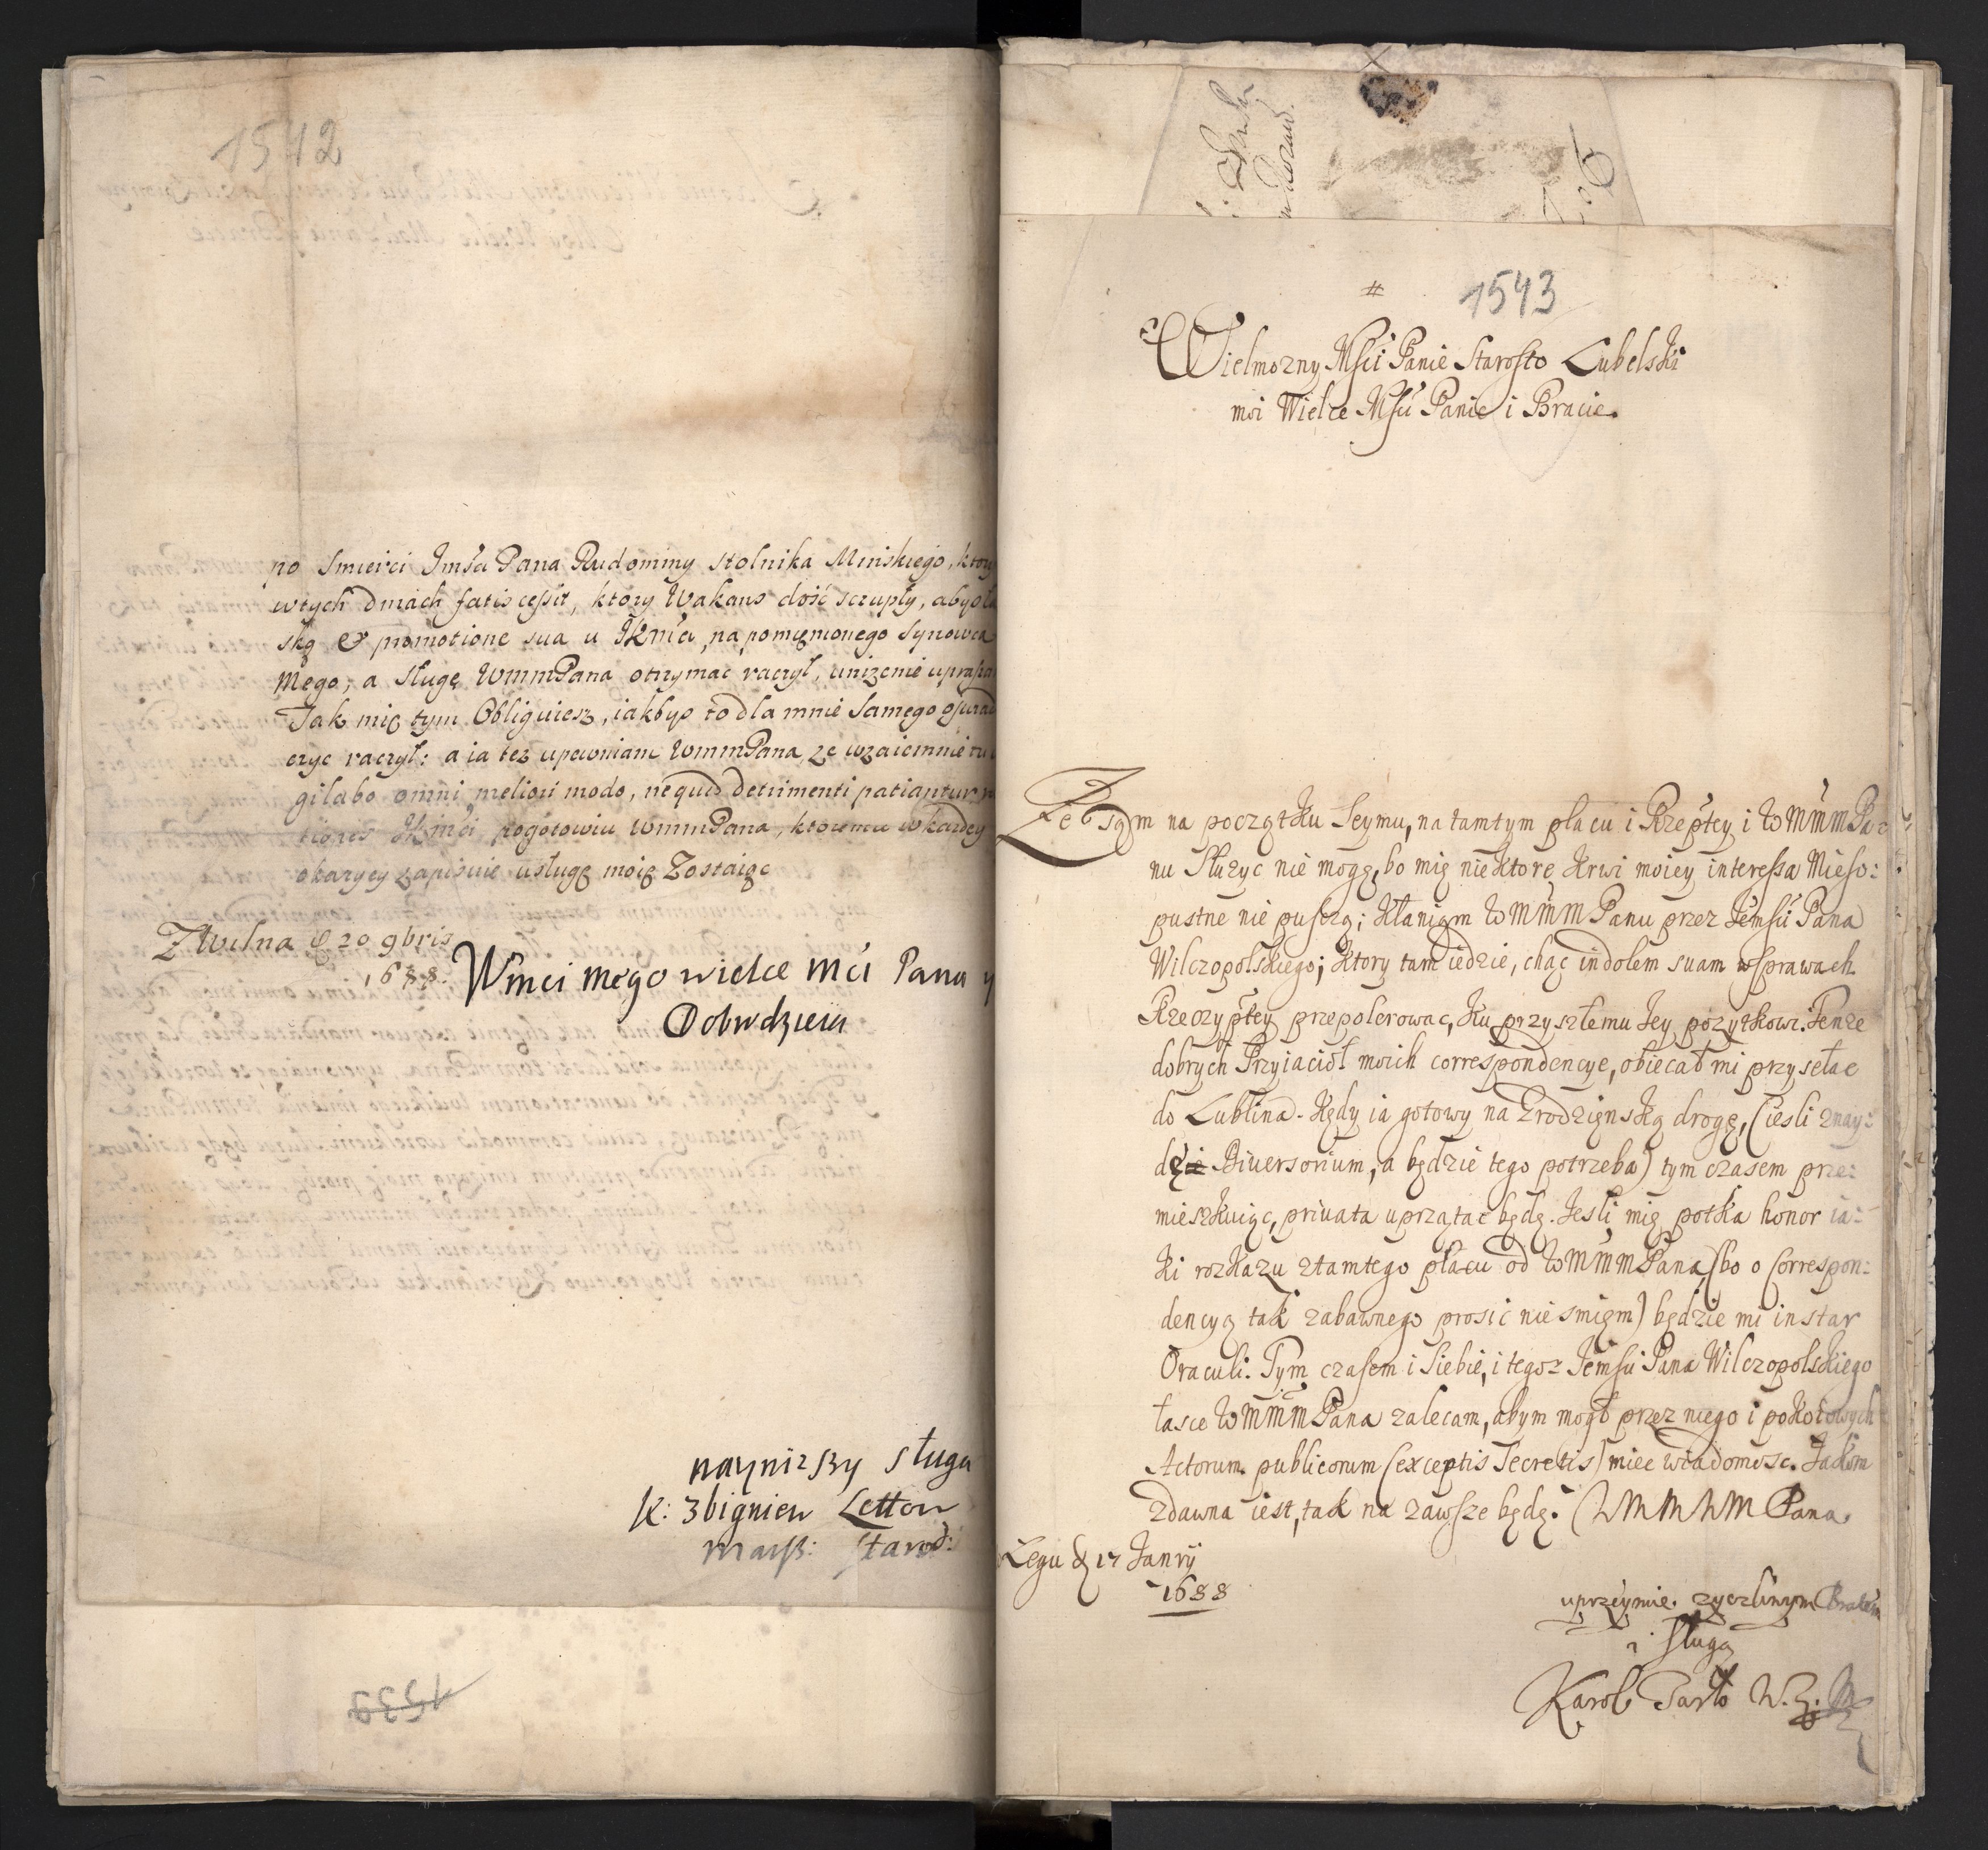 1542
po Smierci Jmści Pana Rudominy Stolnika Minskiego, ktory
w tych dniach fatis cessit, ktory Wakans dość sczupły, abyś ła
ską et promotione sua u JKmści, na pomienionego Synowca
Mego, a Sługę WmmPana otrzymac raczył, unizenie uprasza
Jak mię tym Obliguiesz, iakbyś to dla mnie Samego
czyc raczył: a ia tez upewniam WmmPana, ze wzaiemnie
gilabo omni meliori modo, ne quid detrimenti patiantur
JKmści pogotowiu WmmPana, ktoremu w kazdey
okazyey zapisuię usługę moię Zostaiąc
Z Wilna d 20 9bris
1688.
Wmci mego wielce mci Pana y
Dobrodzieia
naynizszy sługa
K: Zbigniew Lettow
Marsz: Starod:
1539
1543
Wielmozny Msci Panie Starosto Lubelski
moi Wielce Msci Panie i Bracie.
Ze sąm na początku Seymu, na tamtym placu i Rzeptey i WMMM Pa-
nu Słuzyc nie mogę, bo mię niektore krwi moiey interessa Mieso:
pustne nie puszczą; kłaniąm WMMM Panu przez Jemści Pana
Wilczopolskiego; ktory tam iedzie, chąc indolem suam w sprawach
Rzeczyptey przepolerowac, ku przyszłemu Jey pozytkowi. Tenze
dobrych Przyiacioł moich correspondencye, obiecał mi przysełac
do Lublina. kędy ia gotowy na Grodzięnską drogę, (iesli znay:
dę Diuersorium, a będzie tego potrzeba) tym czasem prze:
mieszkuiąc, priuata uprzątac będę. Jesli mię potka honor ia:
ki rozkazu z tamtego placu od WMMM Pana, (bo o Correspon:
dencyą tak zabawnego prosić nie smięm) będzie mi instar
Oraculi. Tym czasem i Siebie, i tegoz Jemści Pana Wilczopolskiego
łasce WMMM Pana zalecam, abym mogł przez niego i pokotowych
Actorum publicorum (exceptis Secretis) miec wiadomosc. Jakom
zdawna iest, tak na zawsze będę. WMMWM Pana.
Legu d 17 Janrij
1688
uprzeymie zyczliwym Bratem
i sługą
Karol Tarło